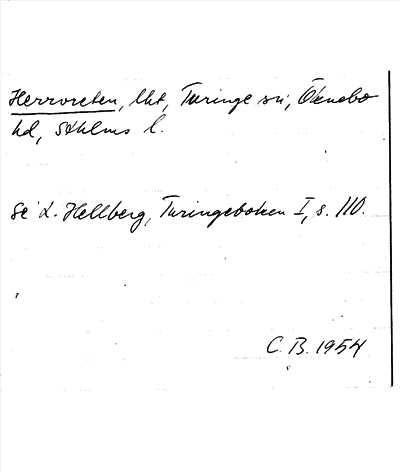 Herrvreten, lht, Turinge sn, Öknebo
hd, Sthlms l.
Se L. Hellberg, Turingeboken I, s. 110.
C. B. 1954